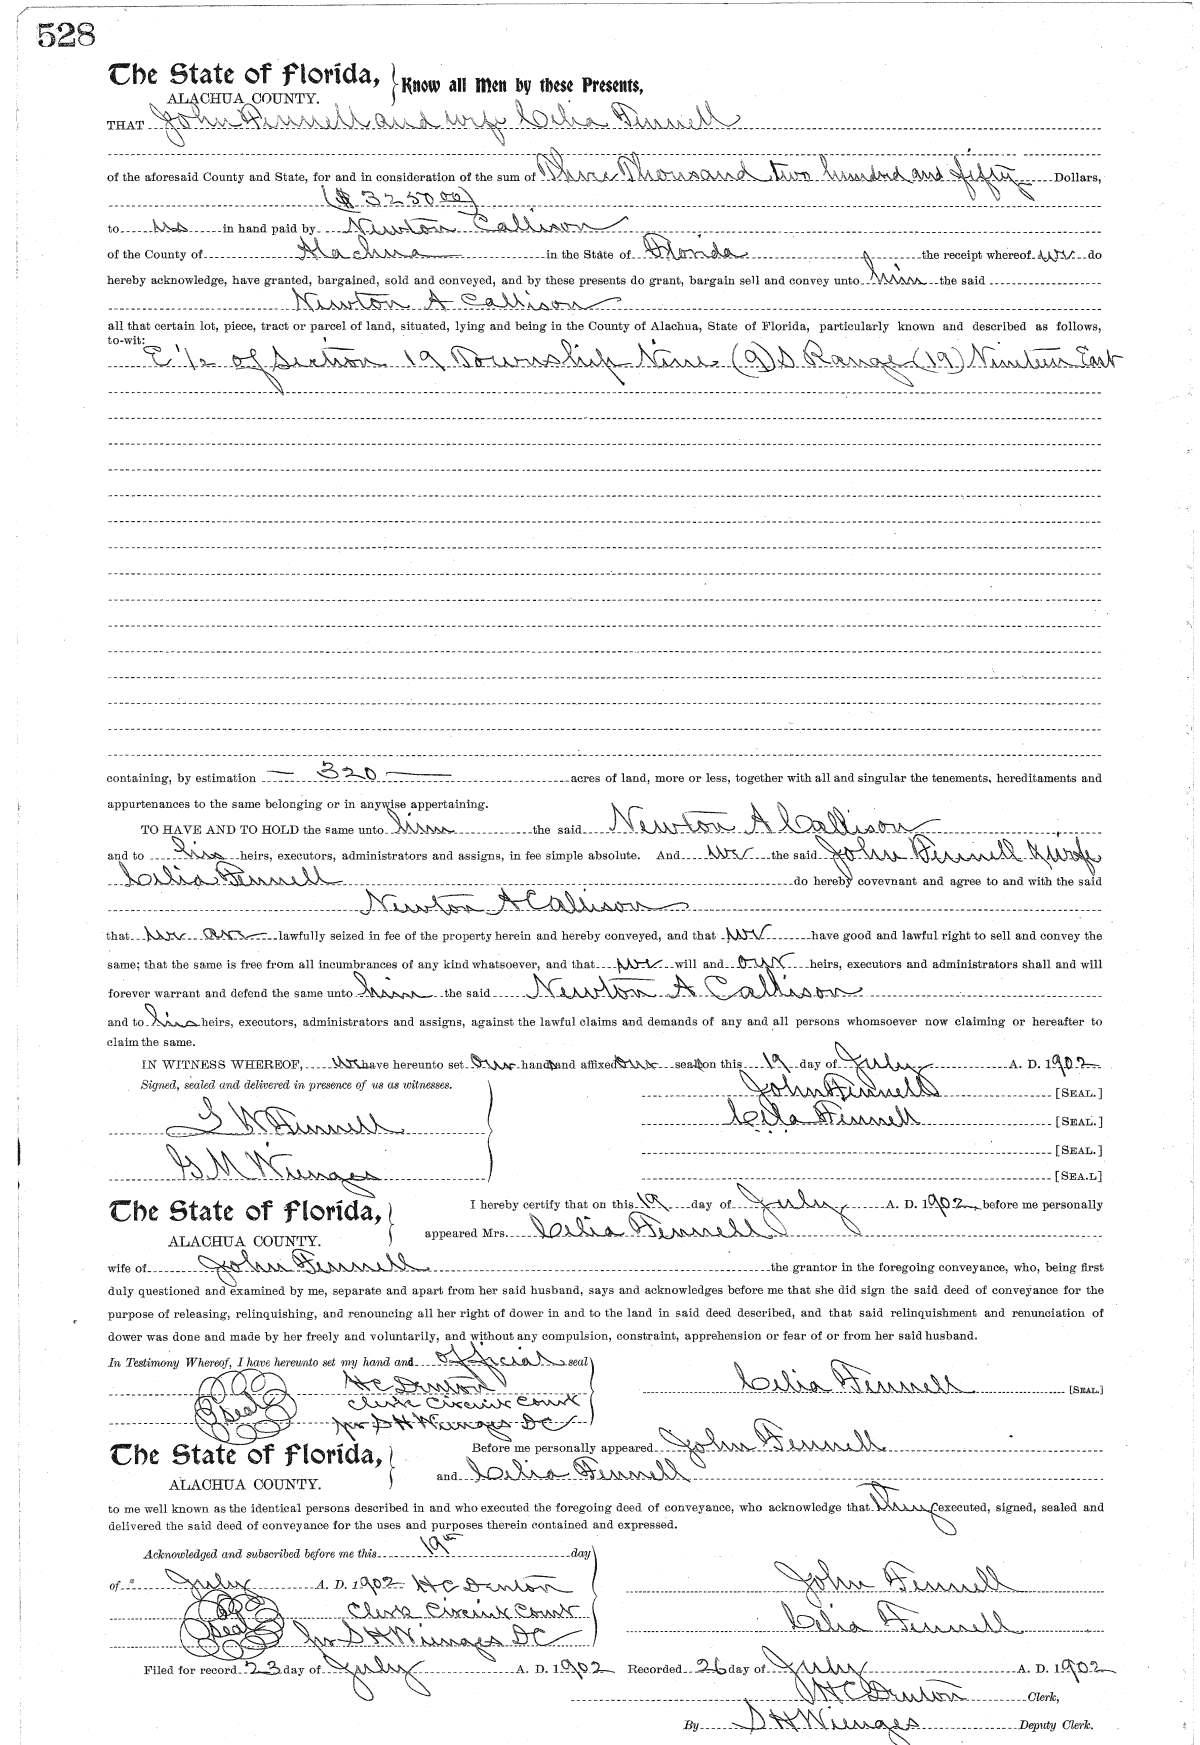 528
The State of Florida, } Know all Men by these Presents,
ALACHUA COUNTY.
THAT John Fennell and wife Celia Fennell
of the aforesaid County and State, for and in consideration of the sum of Three Thousand two hundred and fifty Dollars,
($3250 00)
to us in hand paid by Newton Callison
of the County of Alachua in the State of Florida the receipt whereof we do
hereby acknowledge, have granted, bargained, sold and conveyed, and by these presents do grant, bargain sell and convey unto him the said
Newton A Callison
all that certain lot, piece, tract or parcel of land, situated, lying and being in the County of Alachua, State of Florida, particularly known and described as follows,
to-wit:
E 1/2 of Section 19 Township Nine (9) S Range (19) Nineteen East
containing, by estimation — 320 — acres of land, more or less, together with all and singular the tenements, hereditaments and
appurtenances to the same belonging or in anywise appertaining.
TO HAVE AND TO HOLD the same unto him the said Newton A Callison
and to his heirs, executors, administrators and assigns, in fee simple absolute. And we the said John Fennell & wife
Celia Fennell do hereby covevnant and agree to and with the said
Newton A Callison
that we are lawfully seized in fee of the property herein and hereby conveyed, and that we have good and lawful right to sell and convey the
same; that the same is free from all incumbrances of any kind whatsoever, and that we will and our heirs, executors and administrators shall and will
forever warrant and defend the same unto him the said Newton A Callison
and to his heirs, executors, administrators and assigns, against the lawful claims and demands of any and all persons whomsoever now claiming or hereafter to
claim the same.
IN WITNESS WHEREOF, we have hereunto set our hands and affixed our seals on this 19 day of July A. D. 1902
Signed, sealed and delivered in presence of us as witnesses. John Fennell [SEAL.]
Celia Fennell [SEAL.]
G W Fennell
[SEAL.]
G M Wienges [SEAL.]
The State of Florida, } I hereby certify that on this 19 day of July A. D. 1902, before me personally
ALACHUA COUNTY. appeared Mrs. Celia Fennell
wife of John Fennell the grantor in the foregoing conveyance, who, being first
duly questioned and examined by me, separate and apart from her said husband, says and acknowledges before me that she did sign the said deed of conveyance for the
purpose of releasing, relinquishing, and renouncing all her right of dower in and to the land in said deed described, and that said relinquishment and renunciation of
dower was done and made by her freely and voluntarily, and without any compulsion, constraint, apprehension or fear of or from her said husband.
In Testimony Whereof, I have hereunto set my hand and official seal
H C Denton Celia Fennell [SEAL.]
Seal Clerk Circuit Court
per S H Wienges DC
The State of Florida, } Before me personally appeared John Fennell
ALACHUA COUNTY. and Celia Fennell
to me well known as the identical persons described in and who executed the foregoing deed of conveyance, who acknowledge that they executed, signed, sealed and
delivered the said deed of conveyance for the uses and purposes therein contained and expressed.
Acknowledged and subscribed before me this 19th day
of July A. D. 1902 H C Denton John Fennell
Clerk Circuit Court
Seal per S H Wienges DC Celia Fennell
Filed for record 23 day of July A. D. 1902 Recorded 26 day of July A. D. 1902
H C Denton Clerk,
By S H Wienges Deputy Clerk.